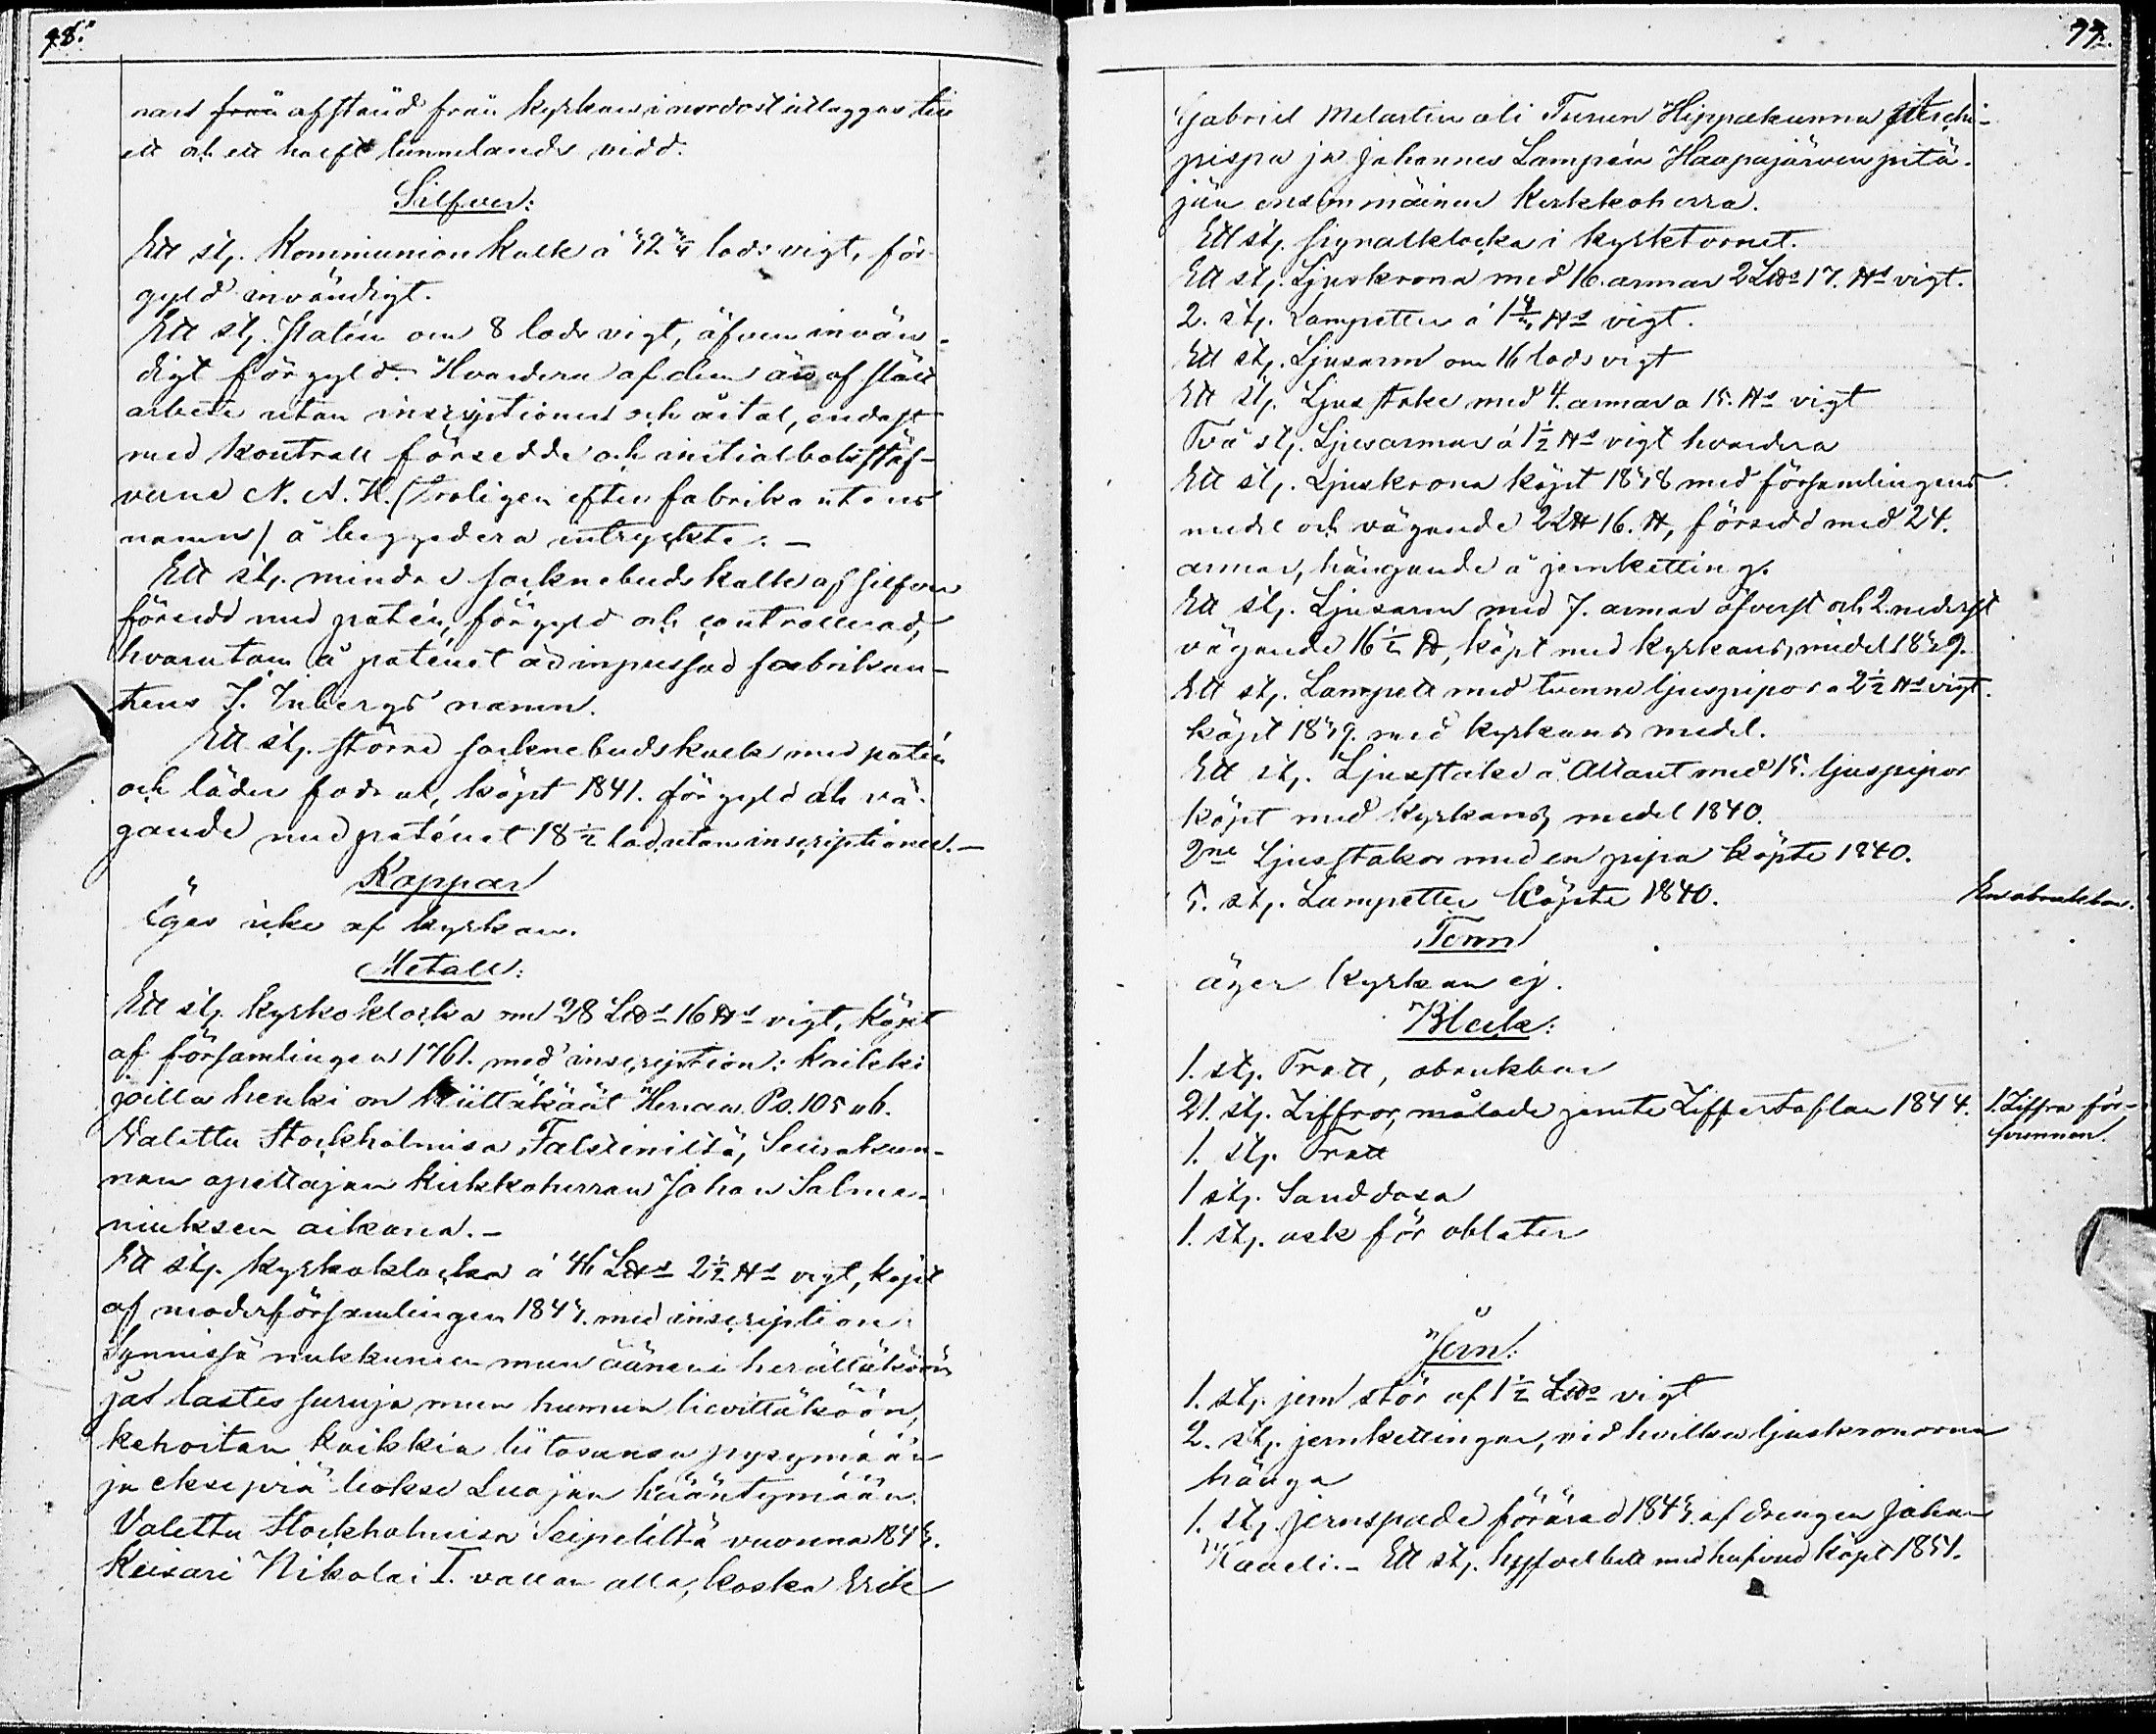 98.
nars från afstånd från kyrkan i nordost utlagges till
ett och ett halft tunnelands vidd.
Silfver:
Ett st. Kommunion Kalk à 42 lods vigt, för-
gyld invändigt.
Ett st. Patén om 8 lods vigt, äfven invän-
digt förgyld. Hvardera af dem äro af slätt
arbete utan inscriptioner och årtal, endast
med Kontroll försedde och initialbokstäf-
verne N. A. K. (troligen efter fabrikantens
namn) å beggedera intryckte. –
Ett st. mindre socknebuds kalk af silfver
försedd med patén, förgyld och controllerad,
hvarutom å paténet är inpressad fabrikan-
tens J. Inbergs namn.
Ett st. större sockne buds kalk med patén
och läder fodral, köpt 1841. förgyld och vä-
gande med paténet 18 ½ lod utan inscriptioner. –
Koppar
Äges icke af kyrkan.
Metall:
Ett st. Kyrkoklocka om 28 L℔s 16 ℔s vigt, köpt
af församlingen 1761. med inscription: Kaikki
joilla henki on kiittäkäät Herran. Ps. 105 v 6.
Valettu Stockholmisa, Seurakun-
nan opettajan kirkkoherran Johan Salme-
niuksen aikana. –
Ett st. Kyrkoklocka à 46 L℔s 2½ ℔s vigt, köpt
af moderförsamlingen 1845. med inscription:
Synnissä nukkunen mun ääneni herättäköön
jät lastes suruja mun humun lievittäköön,
kehoitan kaikkia liitosansa pysymään
ja eksepiä leokse Luojan kääntymään.
Valettu Stockholmisa vuonna 1845.
Keisari Nikolai I. vallan alla, koska Erik
99.
Gabriel Melartin oli Turun Hippakunna Archi-
pispa ja Johannes Lampén Haapajärven pitä-
jän ensimmäinen Kirkkoherra.
Ett st. signalklocka i kyrktornet.
Ett st. Ljuskrona med 16 armar 2 L℔s 17. ℔s vigt.
2. st. Lampetter à 1 ℔s vigt.
Ett st. Ljusarm om 16 lods vigt
Ett st. Ljusstake med 4. armar a 15. ℔s vigt
Två st. Ljusarmar à 1½ ℔s vigt hvardera
Ett st. Ljuskrona köpt 1838 med församlingens
medel och vägande 2 L℔ 16. ℔, försedd med 24.
armar, hängande å jernketting.
Ett st. Ljusarm med 7. armar öfverst och 2 nederst
vägande 16½ ℔, köpt med kyrkans medel 1839.
Ett st. Lampett med tvenne ljuspipor a 2½ ℔s vigt.
köpt 1839. med kyrkans medel.
Ett st. Ljusstake å Altaret med 15. ljuspipor
köpt med kyrkans medel 1840.
2ne Ljusstakar med en pipa köpte 1840.
5. st. Lampetter köpte 1840.
En obrukbar.
Tenn
äger Kyrkan ej.
Bleck:
1. st. Tratt, obrukbar
21. st. Ziffror, målade jemte Ziffertaflan 1844.
1. Ziffra för-
svunnen.
1. st. Tratt
1 st. Sanddosa
1. st. ask för oblater
Jern:
1. st. jern stör af 1½ L℔s vigt
2. st. jernkettingar, vid hvilka ljuskronorna
hänga
1. st. jernspade förärad 1845. af drengen Johan
Kaali. – Ett st. med hufvud köpt 1851.